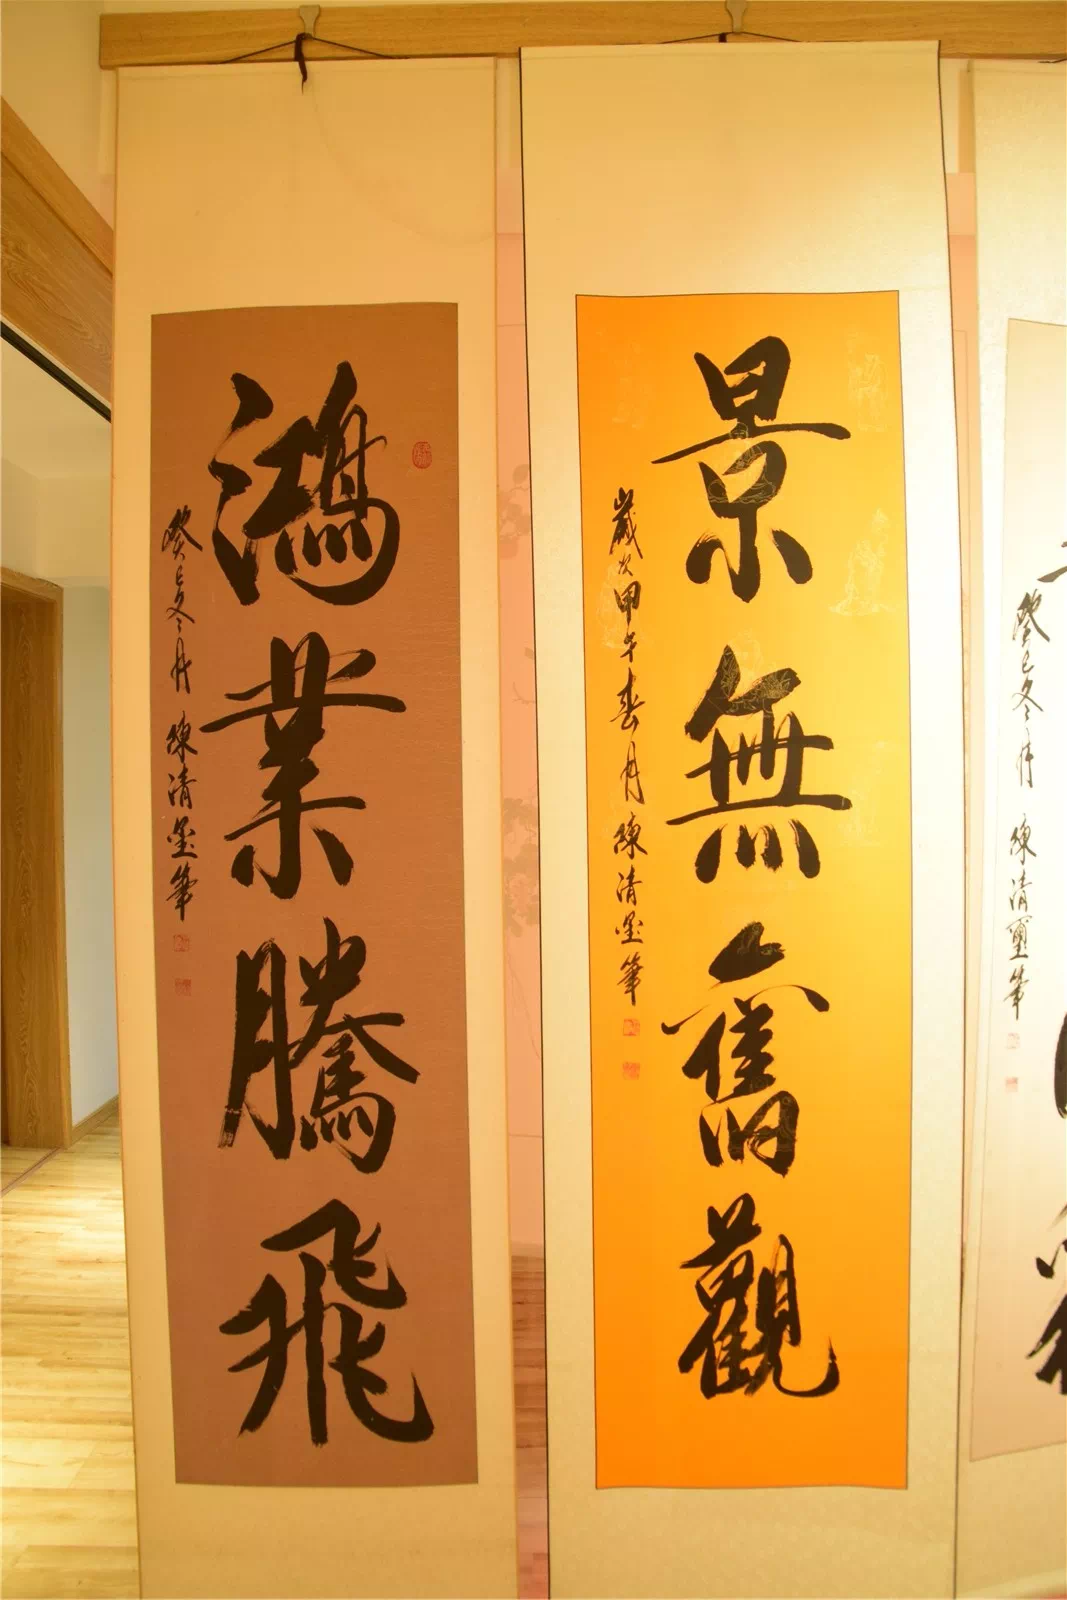 鴻業騰飛
癸巳冬月 陳清墨筆
景無舊觀
歲次甲午春月 陳清墨筆
癸巳冬月 陳清墨筆